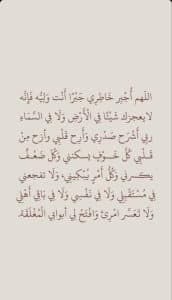 اللهم أُجْبِر خَاطِري جَبْرًا أَنْت وَلِيُّه فَإِنَّه
لا يعجزك شَيْئًا فِي الْأَرْضِ وَلَا فِي السَّمَاءِ
ربي أَشْرَح صَدْرِي وَأَرِح قَلْبِي وأزح مِنْ
قَلْبِي كُلَّ خَــوْفٍ يسكنني وَكُلّ ضَعْـفٌ
يكسرني وَكُلُّ أَمْرٍ يُبْكِينِي، وَلَا تفجعني
فِي مُسْتَقْبِلِي وَلَا فِي نَفْسِـي وَلَا فِي بَاقِي أَهْلِي
وَلَا تُعَسِّر امْرِئ وَافْتَحْ لِي أبوابي الْمُغْلَقَة.